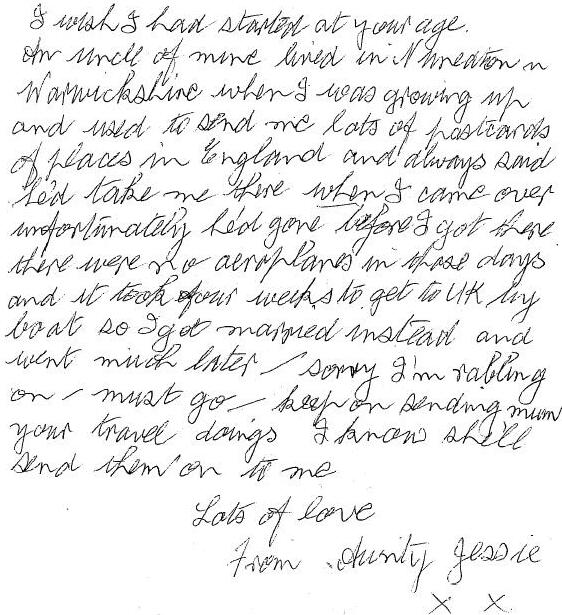 I wish I had started at your age.
An uncle of mine lived in Nuneaton n
Warwickshire when I was growing up
and used to send me lots of postcards
of places in England and always said
he'd take me there when I came over
unfortunately he'd gone before I got there
there were no aeroplanes in those days
and it took four weeks to get to UK by
boat so I got married instead and
went much later – sorry I'm rabling
on – must go – keep on sending mum
your travel doings I know shell
send them on to me
Lots of love
From Aunty Jessie
x x